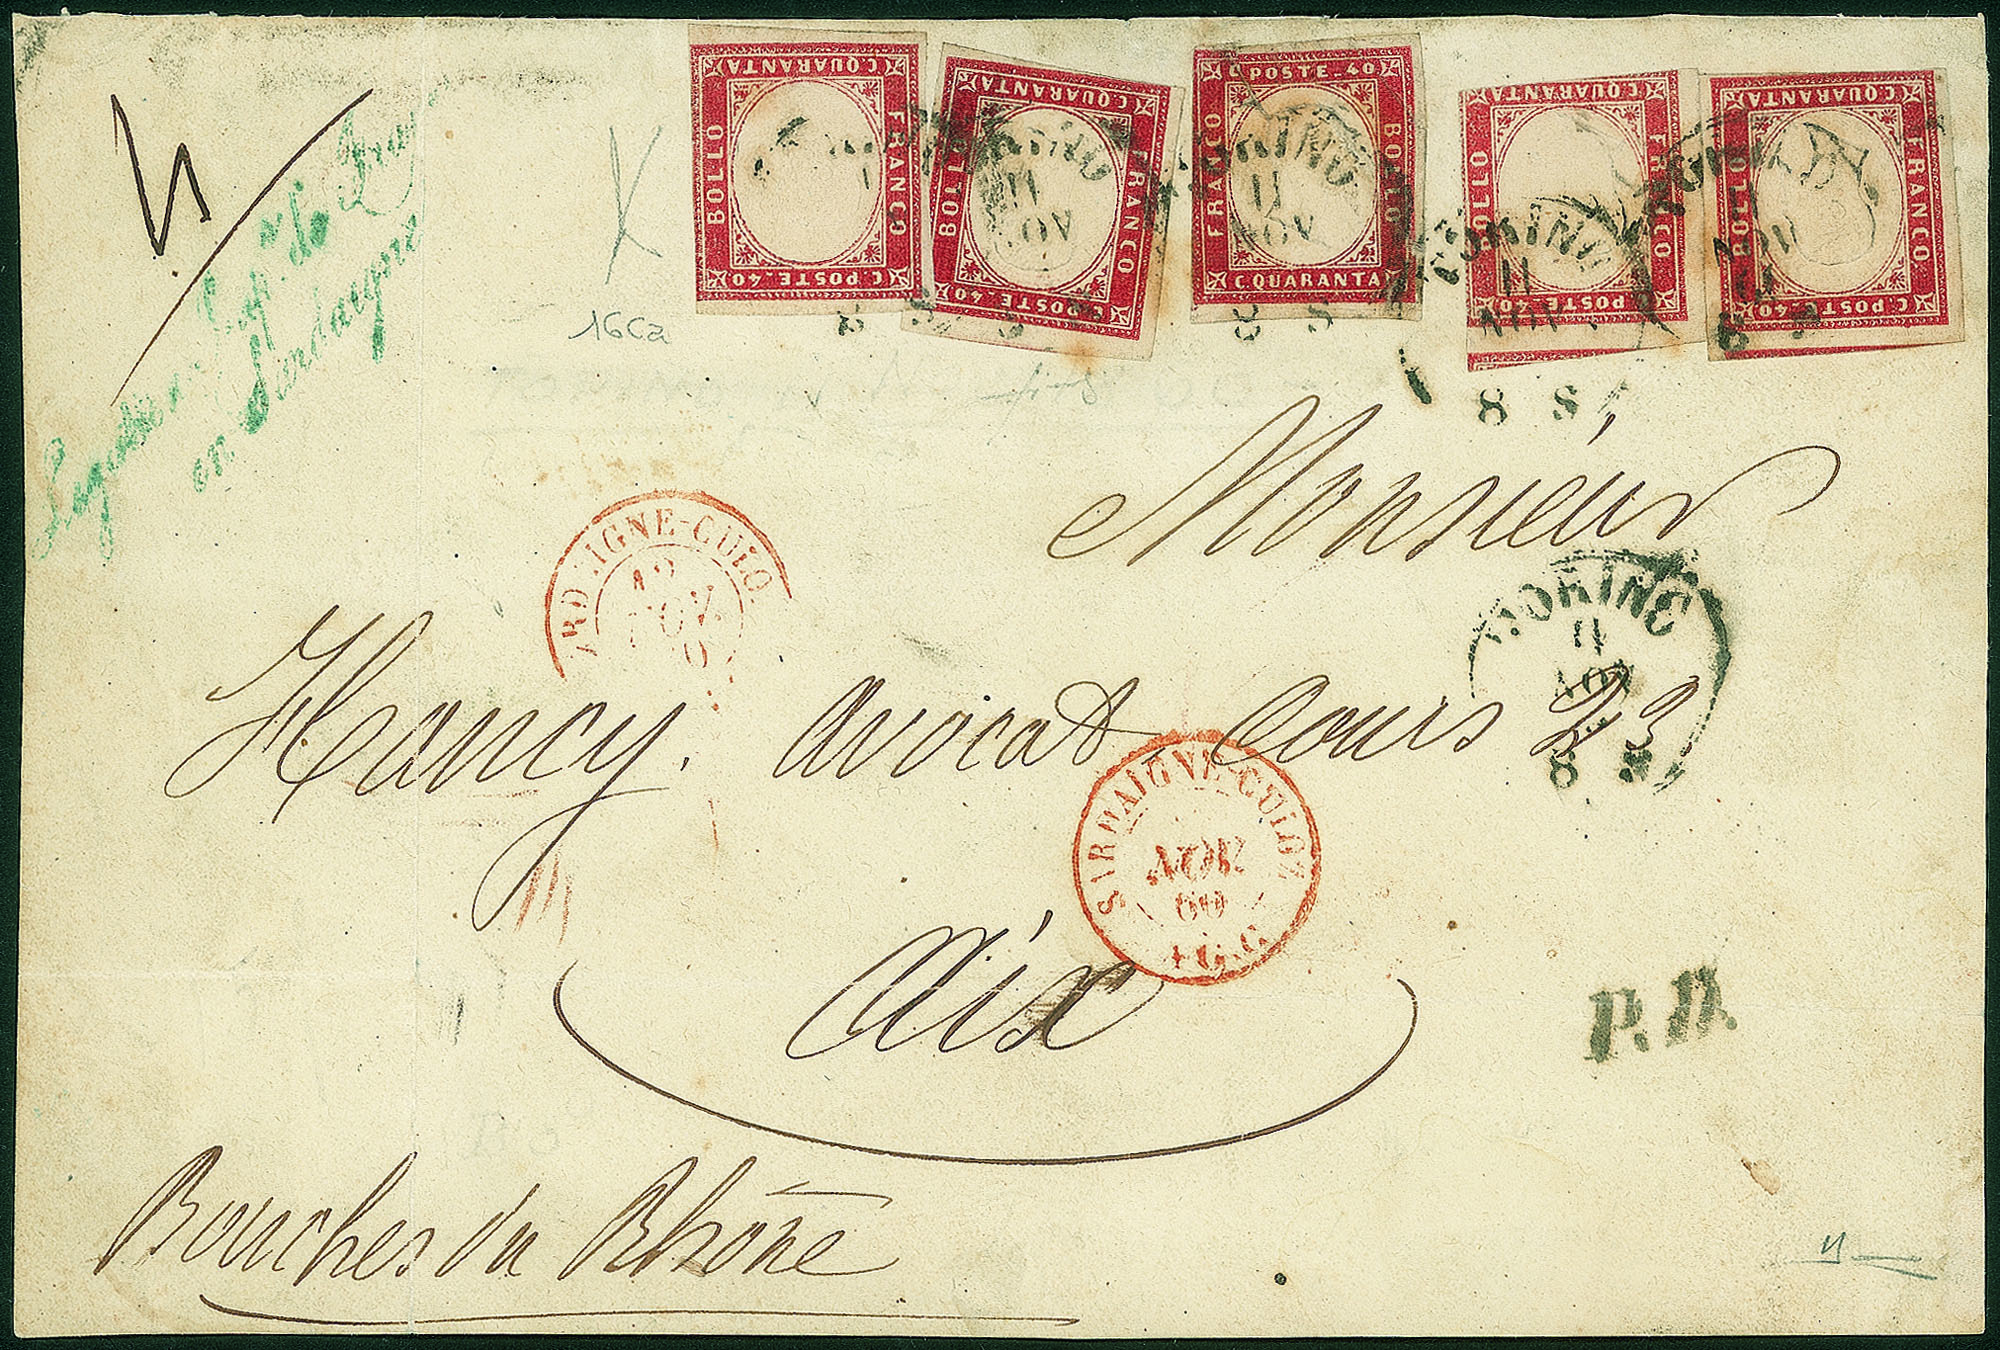 C. QUARANTA
BOLLO
FRANCO
C. POSTE. 40
C. QUARANTA
BOLLO
FRANCO
C. POSTE. 40
C. POSTE. 40
FRANCO
BOLLO
C. QUARANTA
C. QUARANTA
BOLLO
FRANCO
C. POSTE. 40
C. QUARANTA
BOLLO
FRANCO
C. POSTE. 40
TORINO
11
NOV
8 S
en Sardaigne
16Ca
Monsieur
Hancy. avocat, Cours 23
Aix
Bouches du Rhône
TORINO
11
NOV
8 S
12
NOV
SARDAIGNE-CULOZ
NOV
60
P.D.